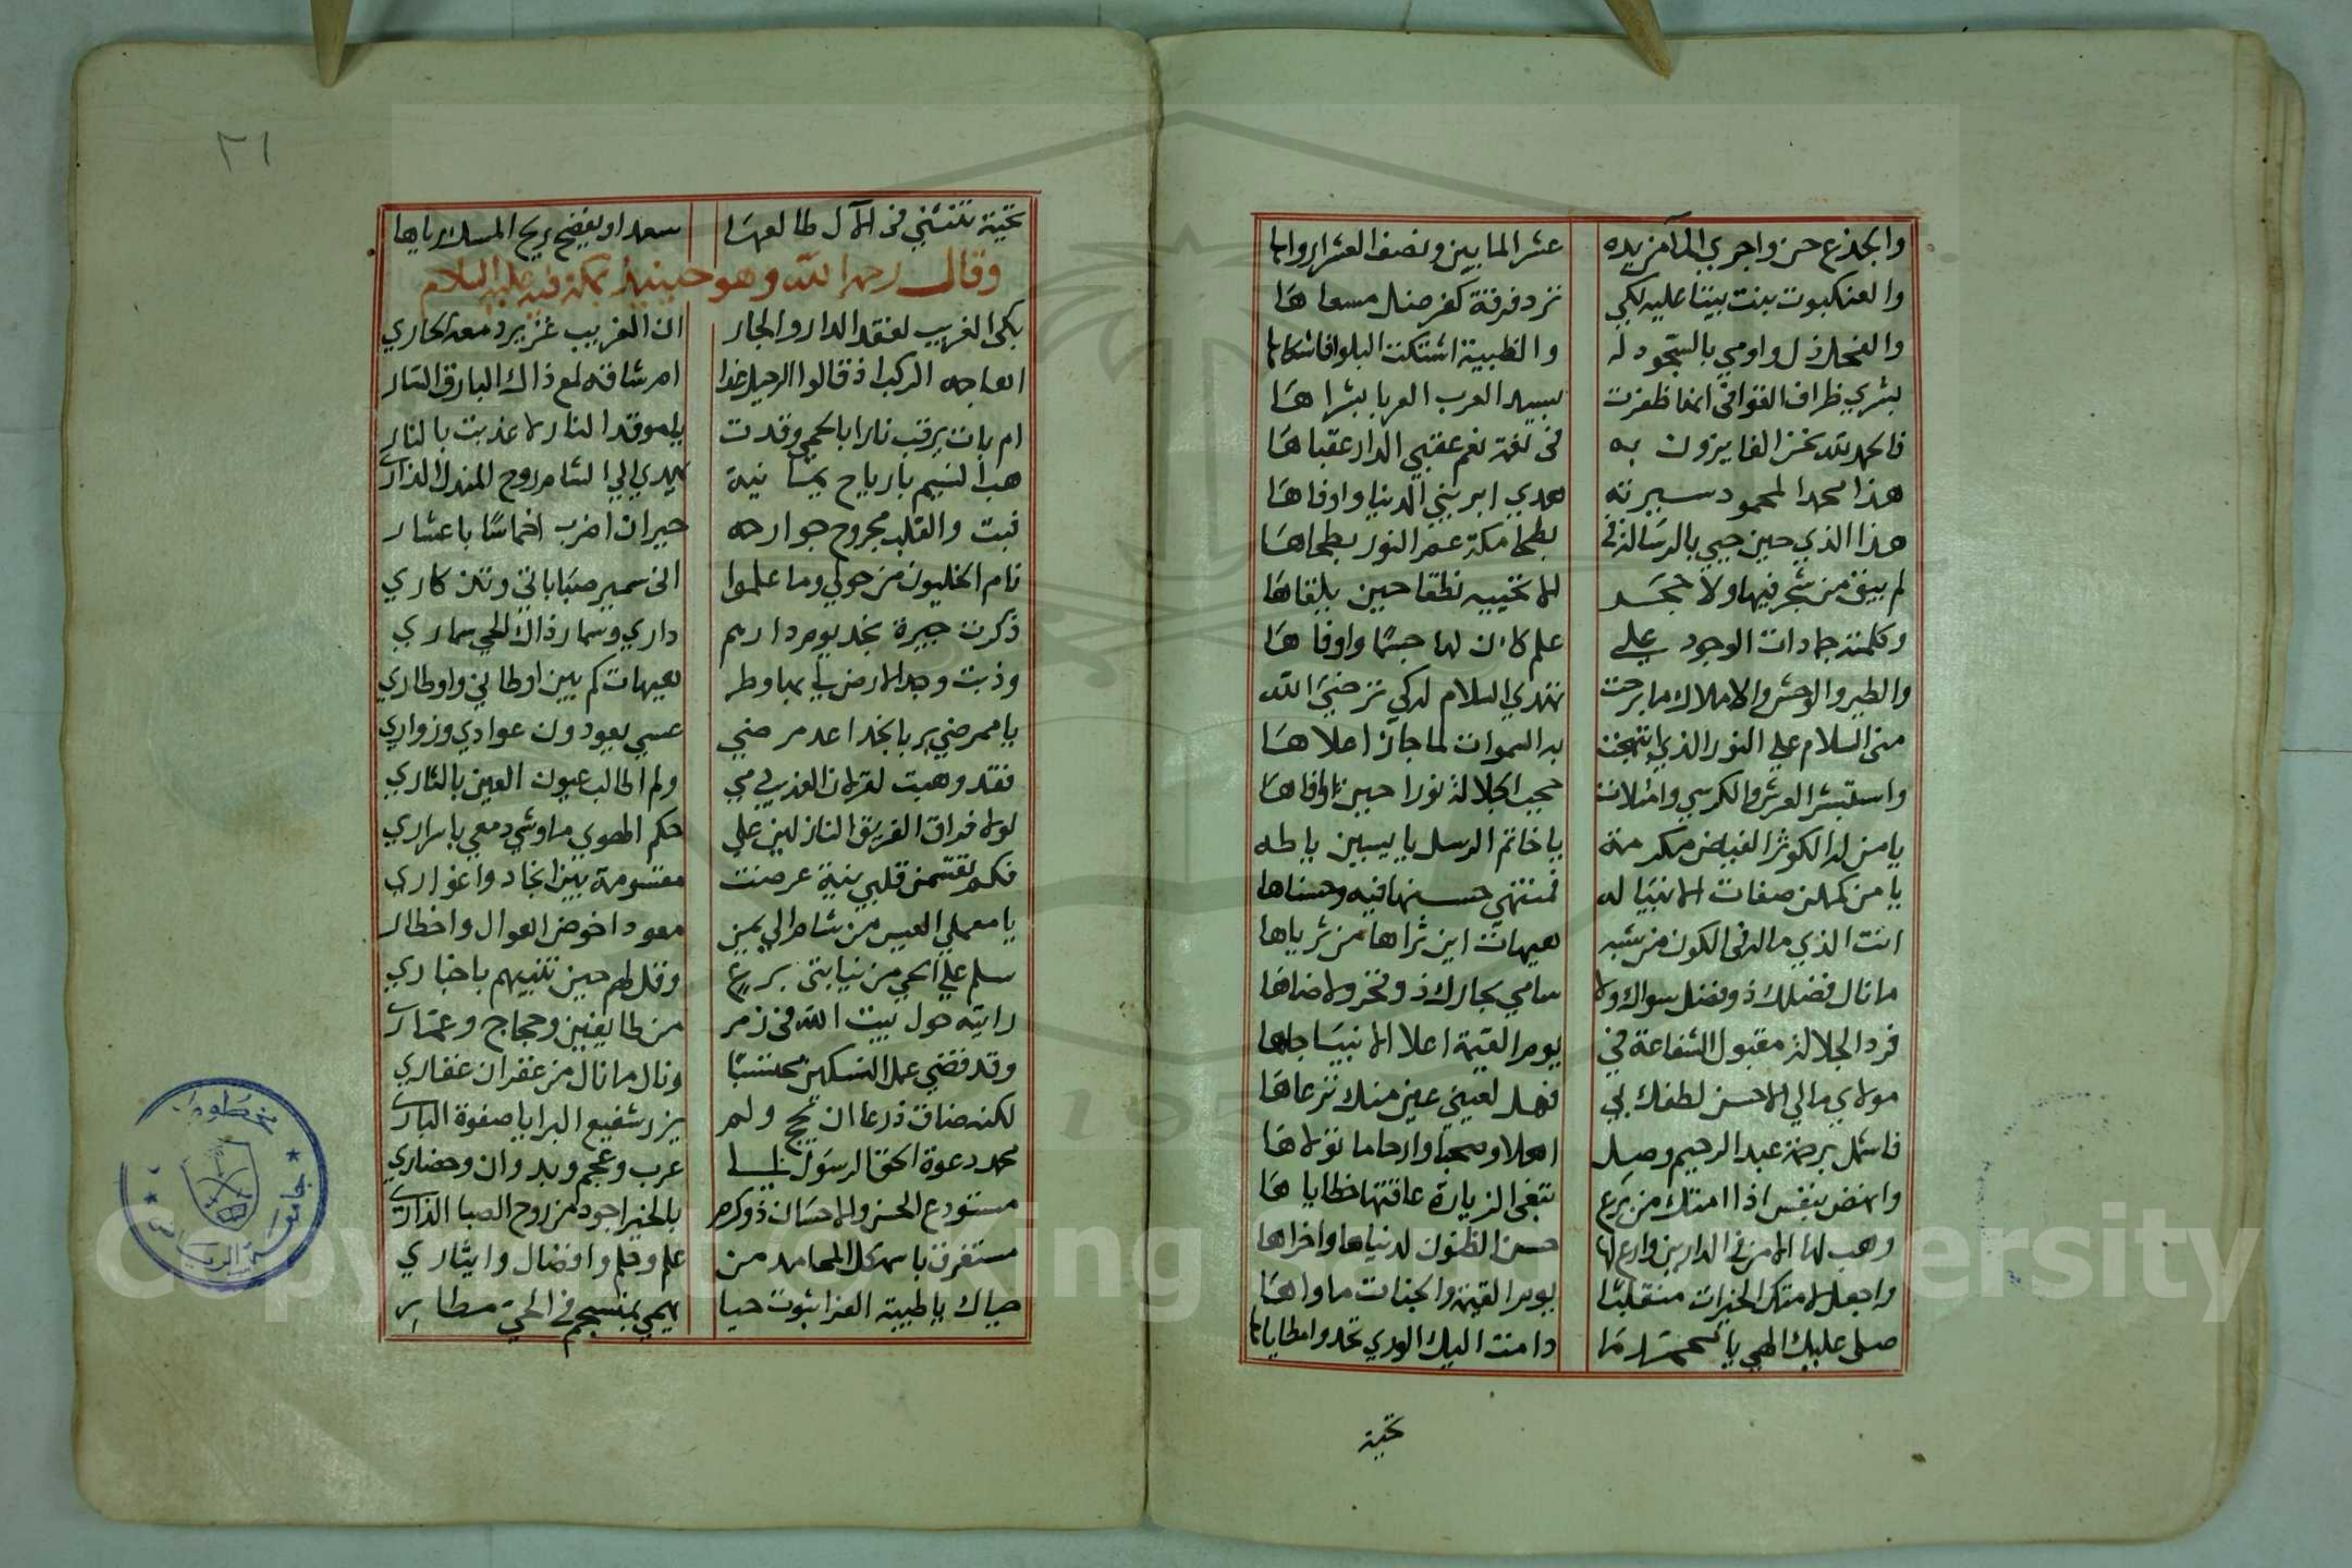 والجذع حن واجري المآ من يده عشر المايين ونصف العشر ارواها
والعنكبوت بنت بيتا عليه لكي ترد فرقة كفر ضل مسعا ها
والفحل ذل واومي بالسجود له والظبية اشتكت البلوا فاشكاها
بشري ظراف القوافي انها ظفرت بسيد العرب العربا بشرا ها
فالحمد لله نحن الفايزون به في نعم عقبي الدار عقبا ها
هذا محمد المحمود سيرته هدي ابر بني الدنيا واوفا ها
هذا الذي حين جيي بالرسالة في بطحا مكة عم النور بطحاها
لم يبق من شجر فيها ولا حجر الا تحييه نطقا حين يلقاها
وكلمته جمادات الوجود علي علم كان لها حسا وافوا ها
والطير والوحش والاملاك ما برحت تهدي السلام لكي ترضي الله
مني السلام علي النور الذي ابتهجت به السموات لما جاز اعلا ها
واستبشر العرش والكرسي وامتلات حجب الجلالة نورا حين وافاها
يا من له الكوثر الفياض مكرمة يا خاتم الرسل يا يسين يا طه
يا من كملن صفات الانبيا له فمنتهي حسنها فيه وحسناها
انت الذي ماله في الكون من شبه هيهات اين ثراها من ثرياها
ما نال فضلك ذو فضل سواك ولا سامي بجارك ذو فخر ولا ضاها
فرد الجلالة مقبول الشفاعة في يوم القيمة اعلا الانبيا جاها
مولاي مالي الا حسن لطفك بي فهل لعيني عين منك ترعاها
فاشمل برحمة عبد الرحيم وصل اهلا وصحبا وارحاما تولا ها
وانهض بنفس اذا امتك من برع تبغي الزيارة عاقتها خطايا ها
وهب لها الامن في الدارين وارع لها حسن الظنون لدنياها واخراها
واجعل لامتك الخيرات منقلبا يوم القيمة والجنات ماواها
صلي عليك الهي يا محمد ما دامت اليك الوري تحدوا مطاياها
تحية
٣١
تحية تنثني في الآل طالعها سعدا ويفضح ريح المسك رياها
وقال رحمه الله وهو حينيذ بمكة فيه عليه السلام
بكي الغريب لفقد الدار والجار ان الغريب غزير دمعه الجاري
اهاجه الركب اذ قالوا الرحيل غدا ام شاقه لمع ذاك البارق السار
ام بات يرقب نارا بالحمي وقدت يا موقد النار لا عذبت بالنار
هب النسيم بارياح يمانية يهدي الي الشام روح المندل الذاري
فبت والقلب مجروح جوارحه حيران اضرب اخماسا باعشار
نام الخليون من حولي وما علموا اني سمير صباباتي وتذكاري
ذكرت جيرة نجد يوم دارهم داري وسمار ذاك الحي سماري
وذبت وجدا لارض لي بها وطر هيهات كم بين اوطاني واوطاري
يا ممرضي بربا نجد اعد مرضي عسي يعودون عوادي وزواري
فقد وهبت لغزلان العذيب دمي ولم اطالب عيون العين بالثاري
لولا فراق الفريق النازلين علي حكم الهوي ما وشي دمعي باسراري
فكم تقسمن قلبي نية عرضت مقسومة بين انجاد واغواري
يا معملي العيس من شام الي يمن معود اخوض اهوال واخطار
سلم علي الحي من نيابتي برع وقل لهم حين تنبيهم باخباري
رايته حول بيت الله في زمر من طايفين وحجاج وعماري
وقد قضي عمل النسكين محتسبا ونال ما نال من غفران غفاري
لكنه ضاق ذرعا ان يحج ولم يزر شفيع البرايا صفوة الباري
محمد دعوة الحق الرسول الي عرب وعجم وبدوان وحضاري
مستودع الحسن والاحسان ذو كرم بالخير اجود من روح الصبا الذاري
مستغرق باسمه كل المحامد من علم وحلم وافضال وايثاري
حياك يا طيبة الغرا بثوب حيا يهمي بمنسجم في الحي مطار
مخطوطات
جامعة الرياض
Copyright © King Saud University